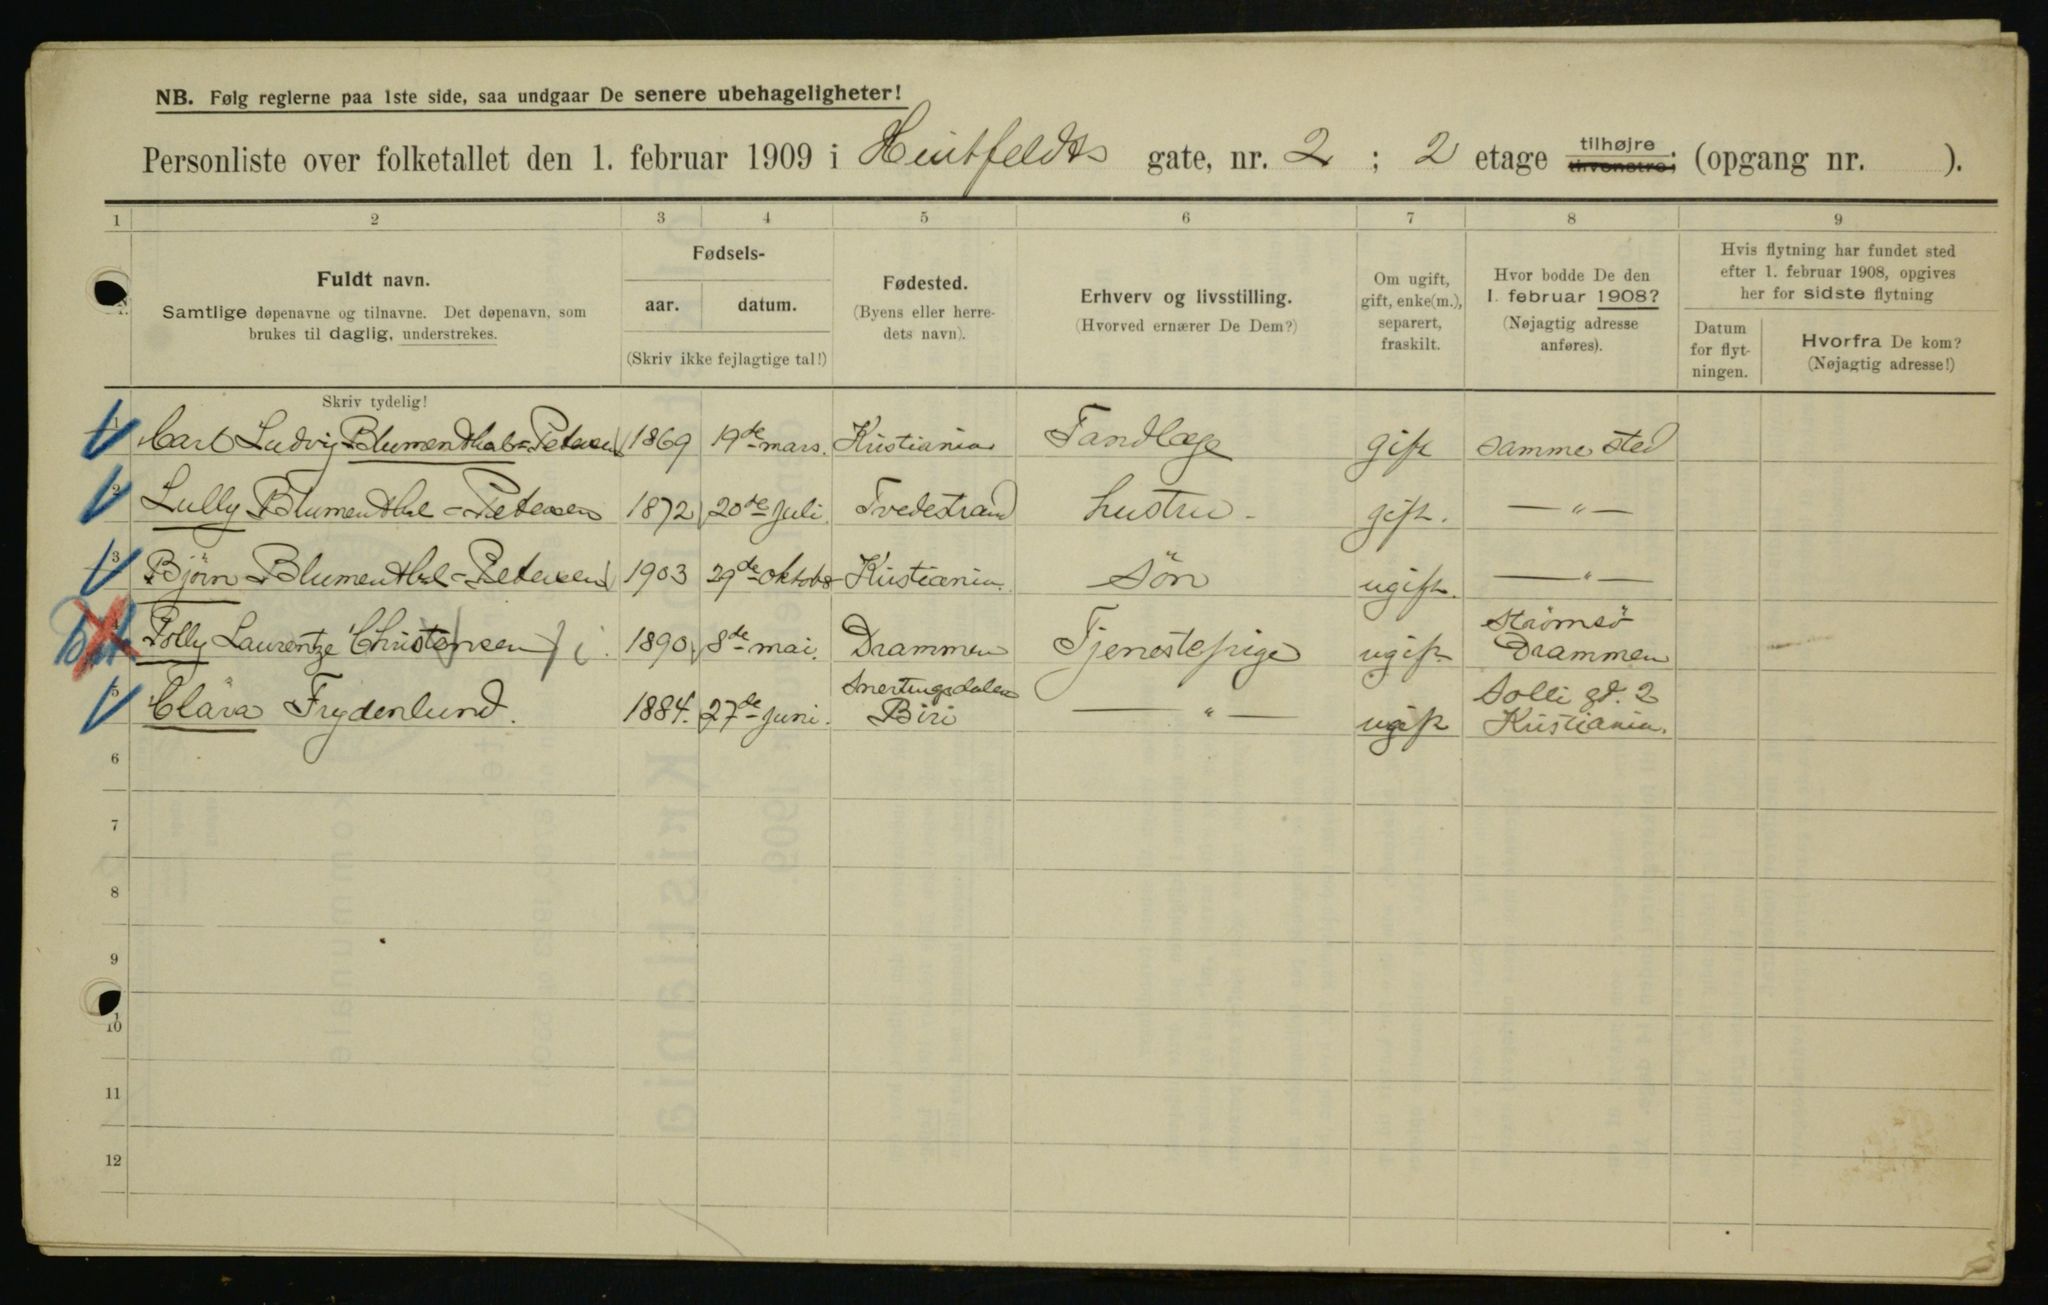 NB. Følg reglerne paa 1ste side, saa undgaar De senere ubehageligheter!
Personliste over folketallet den 1. februar 1909 i Huitfeldts gate, nr. 2 ; 2 etage tilhøjre tilvenstre; (opgang nr. ).
1 2 3 4 5 6 7 8 9
Fuldt navn.
Samtlige døpenavne og tilnavne. Det døpenavn, som
brukes til daglig, understrekes.
Fødsels-
aar. datum.
(Skriv ikke fejlagtige tal!)
Fødested.
(Byens eller herre-
dets navn).
Erhverv og livsstilling.
(Hvorved ernærer De Dem?)
Om ugift,
gift, enke(m.),
separert,
fraskilt.
Hvor bodde De den
1. februar 1908?
(Nøjagtig adresse
anføres).
Hvis flytning har fundet sted
efter 1. februar 1908, opgives
her for sidste flytning
Datum
for flyt-
ningen.
Hvorfra De kom?
(Nøjagtig adresse!)
Skriv tydelig!
1 Carl Ludvig Blumenthal-Petersen 1869 19de mars. Kristiania Tandlæge gift samme sted
2 Lully Blumenthal-Petersen 1872 20de juli Tvedestrand hustru - gift. — " —
3 Björn Blumenthal-Petersen 1903 29de oktober Kristiania. Sön ugift. — " —
Polly Laurentze Christensen / i. 1890 8de mai. Drammen Tjenestepige ugift Strömsö
Drammen
5 Clara Frydenlund. 1884. 27de juni. Snertingsdalen
Biri — " — ugift Solli gd. 2
Kristiania.
6
7
8
9
10
11
12